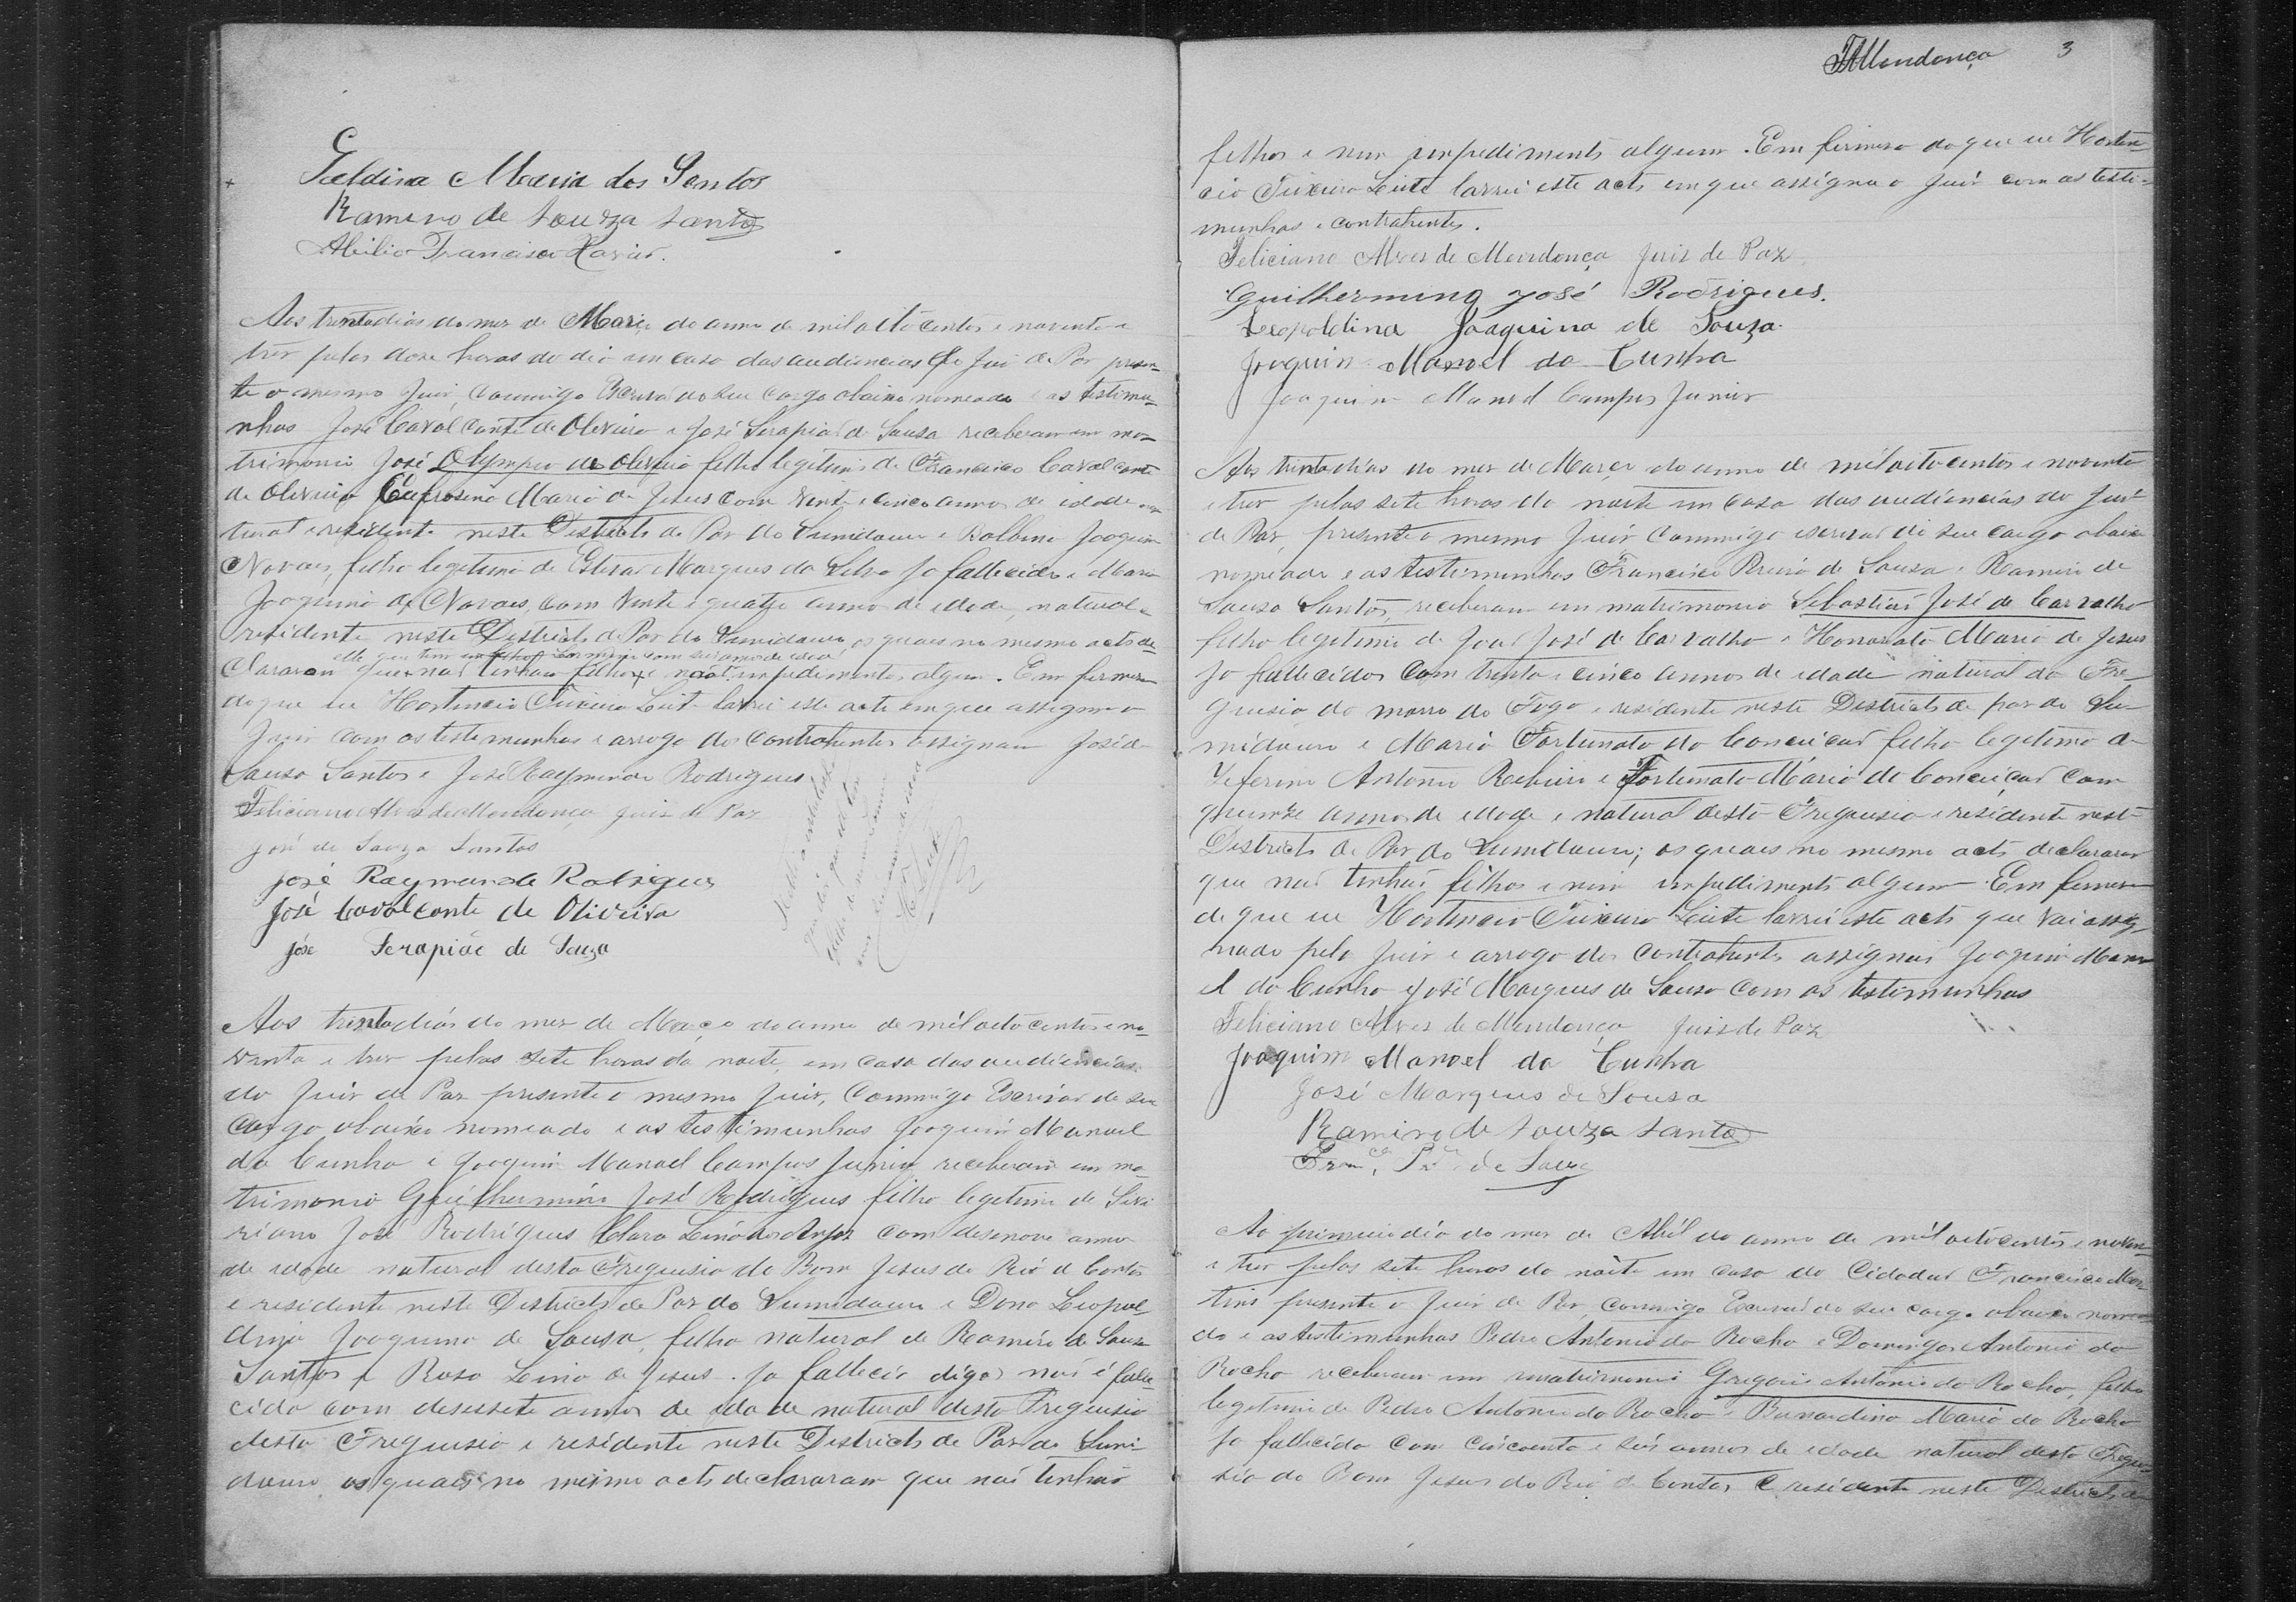 Galdina Maria dos Santos
Ramiro de Souza Santos
Abilio Francisco Xavier.
Aos trinta dias do mez de Março do anno de mil oito centos e noventa e
trez pelas doze horas do dia em casa das audiencias do Juiz de Paz presen-
te o mesmo Juiz, commigo Escrivão do seu cargo abaixo nomeado e as testimu-
nhas José Cavalcante de Oliveira e José Serapião de Sousa receberam em ma-
trimonio José Olympio de Oliveira filho legitimo de Francisco Cavalcante
de Oliveira Eufrosina Maria de Jesus com vinte e cinco annos de idade na-
tural e residente neste Districto de Paz do Sumidouro e Balbina Joaquina
Novaes, filha legitima de Estevão Marques da Silva ja fallecido e Maria
Joaquina de Novaes, com vinte e quatro annos de idade, natural e
residente neste Districto de Paz do Sumidouro, os quaes no mesmo acto de-
elle que tem
clararam que não tenham filhos e não impedimentos algum. Em firmeza
do que eu Hortencio Teixeira Leite lavrei este acto em que assigna o
Juiz com as testemunhas e arrogo dos contrahentes assignam José de
Sausa Santos e José Raymundo Rodrigues
Feliciano Alves de Mendonça juiz de Paz
josé de Souza Santos
José Raymundo Rodrigues
José Cavalcante de Oliveira
José Serapião de Souza
Aos trinta dias do mez de Março do anno de mil oito centos e no-
venta e trez pelas sete horas da noite, em casa das audiencias
do Juiz de Paz presente o mesmo Juiz, Commigo Escrivão do seu
cargo abaixo nomeado e as testimunhas Joaquim Manoel
da Cunha e Joaquim Manoel Campos Junior receberam em ma-
trimonio Guilhermino José Rodrigues filho legitimo de Seve
riano José Rodrigues Clara Lina dos Anjos com desenove annos
de idade natural desta Freguesia do Bom Jesus do Rio de Contas
e residente neste Districto de Paz do Sumidouro e Dona Leopol
dina Joaquina de Sousa, filha natural de Ramiro de Souza
Santos e Rosa Lina de Jesus. ja fallecida digo não é falle-
cida com desessete annos de idade natural desta Freguesia
desta Freguesia e residente neste Districto de Paz do Sumi-
douro, os quaes no mesmo acto declararam que não tinhão
FAMendonça 3
filhos e nem impedimento algum. Em firmeza do que eu Horten-
cio Teixeira Leite lavrei este acto em que assigna o Juiz com as testi-
munhas e contrahentes.
Feliciano Alves de Mendonça Juiz de Paz
Guilhermino José Rodrigues.
Leopoldina Joaquina de Souza.
Joaquim Manoel da Cunha
Joaquim Manoel Campos Junior
Aos trinta dias do mez de Março do anno de mil oito centos e noventa
e trez pelas sete horas da noite em casa das audiencias do Juiz
de Paz, presente o mesmo Juiz commigo escrivão di seu cargo abaixo
nomeado e as testimunhas Francisco Pereira de Sousa e Ramiro de
Sausa Santos, receberam em matrimonio Sebastião José de Carvalho
filho legitimo de João José de Carvalho e Honorata Maria de Jesus
ja fallecidos com trinta e cinco annos de idade natural da Fre-
guesia do morro do Fogo e residente neste Districto de paz do Su-
midouro e Maria Fortunata da Conceicão filha legitima de
Zeferino Antonio Ribeiro e Fortunata Maria da Conceicão com
quinze annos de idade e natural desta Freguesia e residente neste
Districto de Paz do Sumidouro; os quaes no mesmo acto declararam
que não tinhão filhos e nem impedimento algum. Em firmeza
de que eu Hortencio Teixeira Leite lavrei este acto que vai assig
nado pelo Juiz e arrogo dos contrahentes assignão Joaquim Mano
el da Cunha e José Marques de Sausa com as testimunhas
Feliciano Alves de Mendonça Juiz de Paz
Joaquim Manoel da Cunha
José Marques de Sousa
Ramiro de Souza Santos
Fran.co Pr.a de Sauza
Ao primeiro dia do mez de Abril do anno de mil oito centos e noven-
e trez pelas sete horas da noite em casa do Cidadão Francisco Mar-
tins presente o Juiz de Paz, commigo Escrivão do seu cargo abaixo nomea
do e as testimunhas Pedro Antonio da Rocha e Domingos Antonio da
Rocha receberam em matrimonio Gregorio Antonio da Rocha, filho
legitimo de Pedro Antonio da Rocha e Bernardina Maria da Rocha
ja fallecida com cincoenta e seis annos de idade natural desta Fregue-
sia do Bom Jesus do Rio de Contas e residente neste Districto de